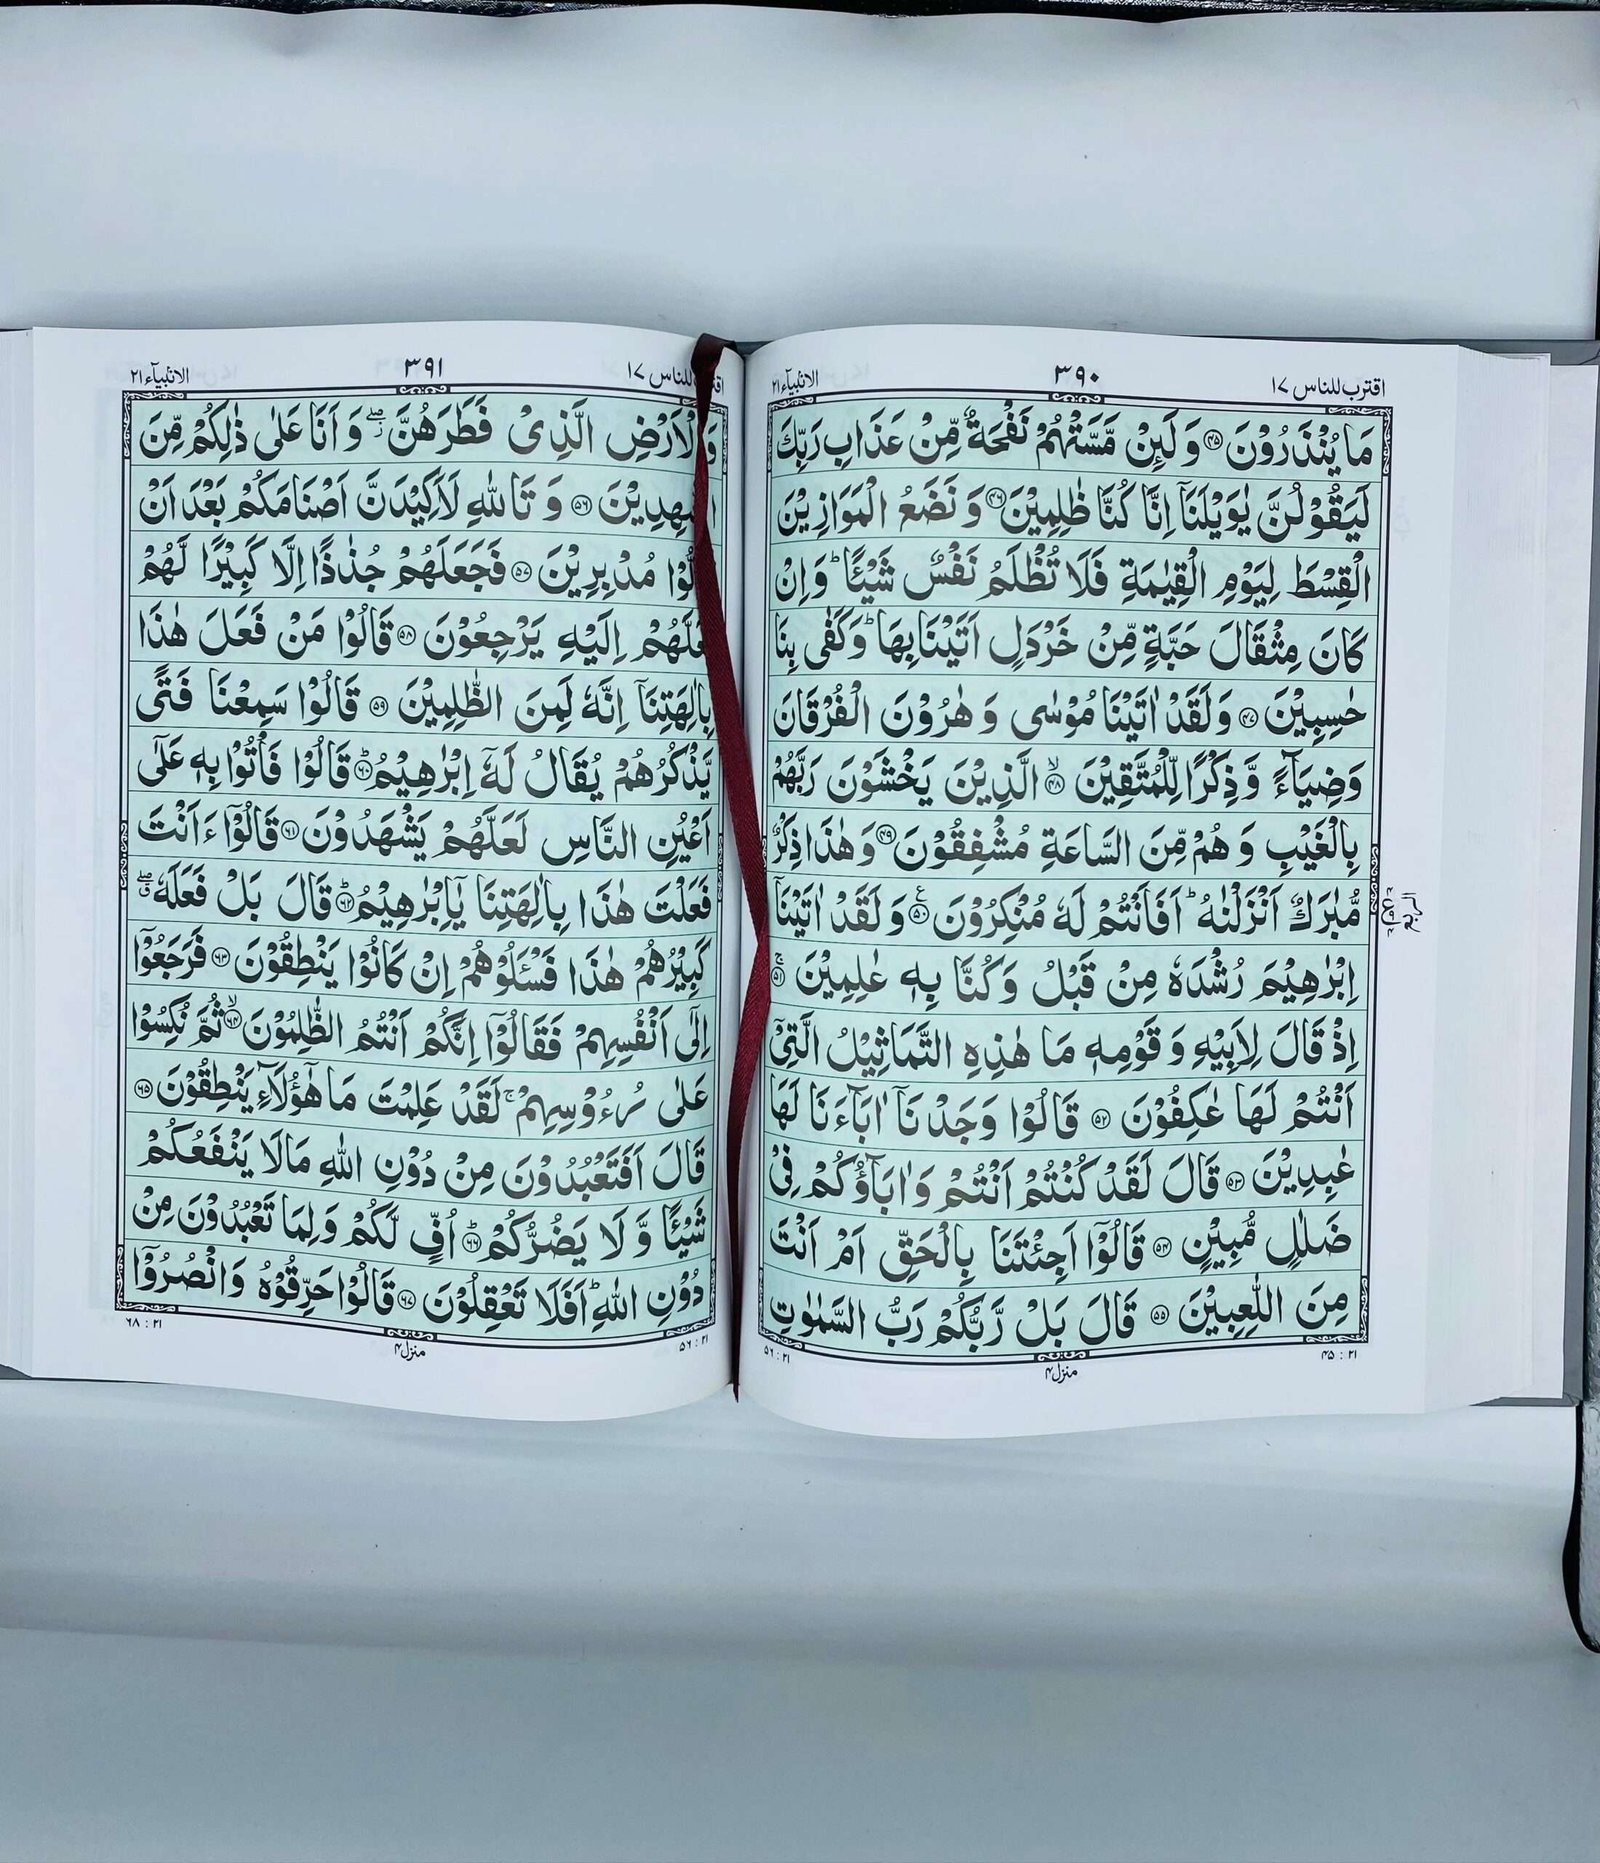 اقترب للناس ١٧
٣٩٠
الانبیآء ٢١
مَا يُنْذَرُوْنَ ۴۵ وَلَئِنْ مَّسَّتْهُمْ نَفْحَةٌ مِّنْ عَذَابِ رَبِّكَ
لَيَقُوْلُنَّ يٰوَيْلَنَآ اِنَّا كُنَّا ظٰلِمِيْنَ ۴۶ وَنَضَعُ الْمَوَازِيْنَ
الْقِسْطَ لِيَوْمِ الْقِيٰمَةِ فَلَا تُظْلَمُ نَفْسٌ شَيْـًٔا ؕ وَاِنْ
كَانَ مِثْقَالَ حَبَّةٍ مِّنْ خَرْدَلٍ اَتَيْنَا بِهَا ؕ وَكَفٰى بِنَا
حٰسِبِيْنَ ۴۷ وَلَقَدْ اٰتَيْنَا مُوْسٰى وَهٰرُوْنَ الْفُرْقَانَ
وَضِيَآءً وَّذِكْرًا لِّلْمُتَّقِيْنَ ۙ ۴۸ الَّذِيْنَ يَخْشَوْنَ رَبَّهُمْ
بِالْغَيْبِ وَهُمْ مِّنَ السَّاعَةِ مُشْفِقُوْنَ ۴۹ وَهٰذَا ذِكْرٌ
مُّبٰرَكٌ اَنْزَلْنٰهُ ؕ اَفَاَنْتُمْ لَهٗ مُنْكِرُوْنَ ۵۰ ع وَلَقَدْ اٰتَيْنَآ
اِبْرٰهِيْمَ رُشْدَهٗ مِنْ قَبْلُ وَكُنَّا بِهٖ عٰلِمِيْنَ ۚ ۵۱
اِذْ قَالَ لِاَبِيْهِ وَقَوْمِهٖ مَا هٰذِهِ التَّمَاثِيْلُ الَّتِيْٓ
اَنْتُمْ لَهَا عٰكِفُوْنَ ۵۲ قَالُوْا وَجَدْنَآ اٰبَآءَنَا لَهَا
عٰبِدِيْنَ ۵۳ قَالَ لَقَدْ كُنْتُمْ اَنْتُمْ وَاٰبَآؤُكُمْ فِيْ
ضَلٰلٍ مُّبِيْنٍ ۵۴ قَالُوْٓا اَجِئْتَنَا بِالْحَقِّ اَمْ اَنْتَ
مِنَ اللّٰعِبِيْنَ ۵۵ قَالَ بَلْ رَّبُّكُمْ رَبُّ السَّمٰوٰتِ
۴۵ : ٢١
منزل ۴
۵۶ : ٢١
للناس ١٧
٣٩١
الانبیآء ٢١
وَالْاَرْضِ الَّذِيْ فَطَرَهُنَّ ۖ وَاَنَا عَلٰى ذٰلِكُمْ مِّنَ
الشّٰهِدِيْنَ ۵۶ وَتَاللّٰهِ لَاَكِيْدَنَّ اَصْنَامَكُمْ بَعْدَ اَنْ
تُوَلُّوْا مُدْبِرِيْنَ ۵۷ فَجَعَلَهُمْ جُذٰذًا اِلَّا كَبِيْرًا لَّهُمْ
لَعَلَّهُمْ اِلَيْهِ يَرْجِعُوْنَ ۵۸ قَالُوْا مَنْ فَعَلَ هٰذَا
بِاٰلِهَتِنَآ اِنَّهٗ لَمِنَ الظّٰلِمِيْنَ ۵۹ قَالُوْا سَمِعْنَا فَتًى
يَّذْكُرُهُمْ يُقَالُ لَهٗٓ اِبْرٰهِيْمُ ؕ ۶۰ قَالُوْا فَاْتُوْا بِهٖ عَلٰٓى
اَعْيُنِ النَّاسِ لَعَلَّهُمْ يَشْهَدُوْنَ ۶۱ قَالُوْٓا ءَاَنْتَ
فَعَلْتَ هٰذَا بِاٰلِهَتِنَا يٰٓاِبْرٰهِيْمُ ؕ ۶۲ قَالَ بَلْ فَعَلَهٗ ۖ ق
كَبِيْرُهُمْ هٰذَا فَسْـَٔلُوْهُمْ اِنْ كَانُوْا يَنْطِقُوْنَ ۶۳ فَرَجَعُوْٓا
اِلٰٓى اَنْفُسِهِمْ فَقَالُوْٓا اِنَّكُمْ اَنْتُمُ الظّٰلِمُوْنَ ۙ ۶۴ ثُمَّ نُكِسُوْا
عَلٰى رُءُوْسِهِمْ ۚ لَقَدْ عَلِمْتَ مَا هٰٓؤُلَآءِ يَنْطِقُوْنَ ۶۵
قَالَ اَفَتَعْبُدُوْنَ مِنْ دُوْنِ اللّٰهِ مَا لَا يَنْفَعُكُمْ
شَيْـًٔا وَّلَا يَضُرُّكُمْ ؕ ۶۶ اُفٍّ لَّكُمْ وَلِمَا تَعْبُدُوْنَ مِنْ
دُوْنِ اللّٰهِ ؕ اَفَلَا تَعْقِلُوْنَ ۶۷ قَالُوْا حَرِّقُوْهُ وَانْصُرُوْٓا
۵۶ : ٢١
منزل ۴
۶۸ : ٢١